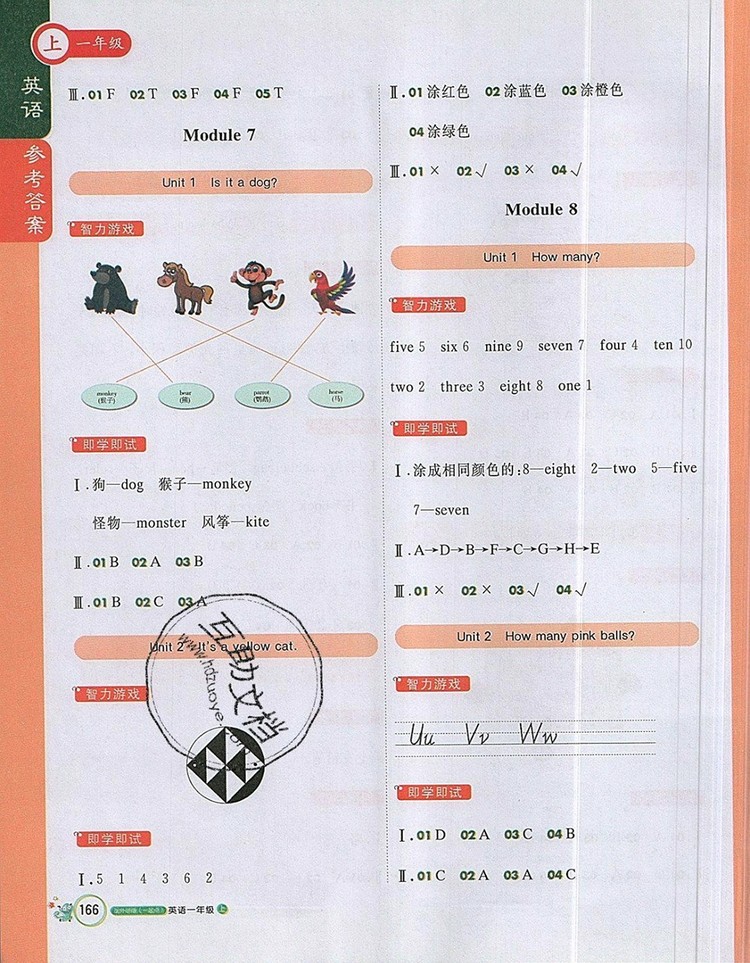 上 一年级
英语
参考答案
Ⅲ.01 F 02 T 03 F 04 F 05 T
Module 7
Unit 1 Is it a dog?
智力游戏
monkey (猴子) bear (熊) parrot (鹦鹉) horse (马)
即学即试
Ⅰ.狗—dog 猴子—monkey
怪物—monster 风筝—kite
Ⅱ.01 B 02 A 03 B
Ⅲ.01 B 02 C 03 A
Unit 2 It's a yellow cat.
智力游戏
互助文档
www.hdzuoye.com
即学即试
Ⅰ.5 1 4 3 6 2
Ⅱ.01 涂红色 02 涂蓝色 03 涂橙色
04 涂绿色
Ⅲ.01 × 02 √ 03 × 04 √
Module 8
Unit 1 How many?
智力游戏
five 5 six 6 nine 9 seven 7 four 4 ten 10
two 2 three 3 eight 8 one 1
即学即试
Ⅰ.涂成相同颜色的:8—eight 2—two 5—five
7—seven
Ⅱ.A→D→B→F→C→G→H→E
Ⅲ.01 × 02 × 03 √ 04 √
Unit 2 How many pink balls?
智力游戏
Uu Vv Ww
即学即试
Ⅰ.01 D 02 A 03 C 04 B
Ⅱ.01 C 02 A 03 A 04 C
166 英语一年级 上